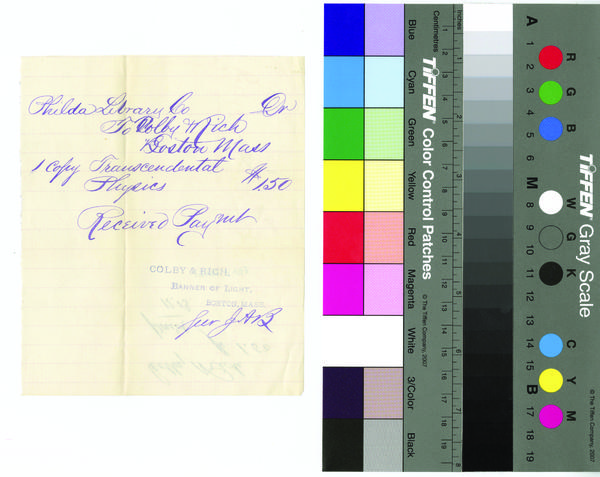 Philda Library Co Dr
To Colby & Rich
Boston Mass
1 Copy Transcendental
Physics $1.50
Received Paymt
COLBY & RICH,
BANNER OF LIGHT,
BOSTON, MASS.
Per J A B
Inches
Centimetres
TIFFEN Color Control Patches
© The Tiffen Company, 2007
Blue
Cyan
Green
Yellow
Red
Magenta
White
3/Color
Black
TIFFEN Gray Scale
© The Tiffen Company, 2007
R G B
W G K
C Y M
A 1 2 3 4 5 6 M 8 9 10 11 12 13 14 15 B 17 18 19